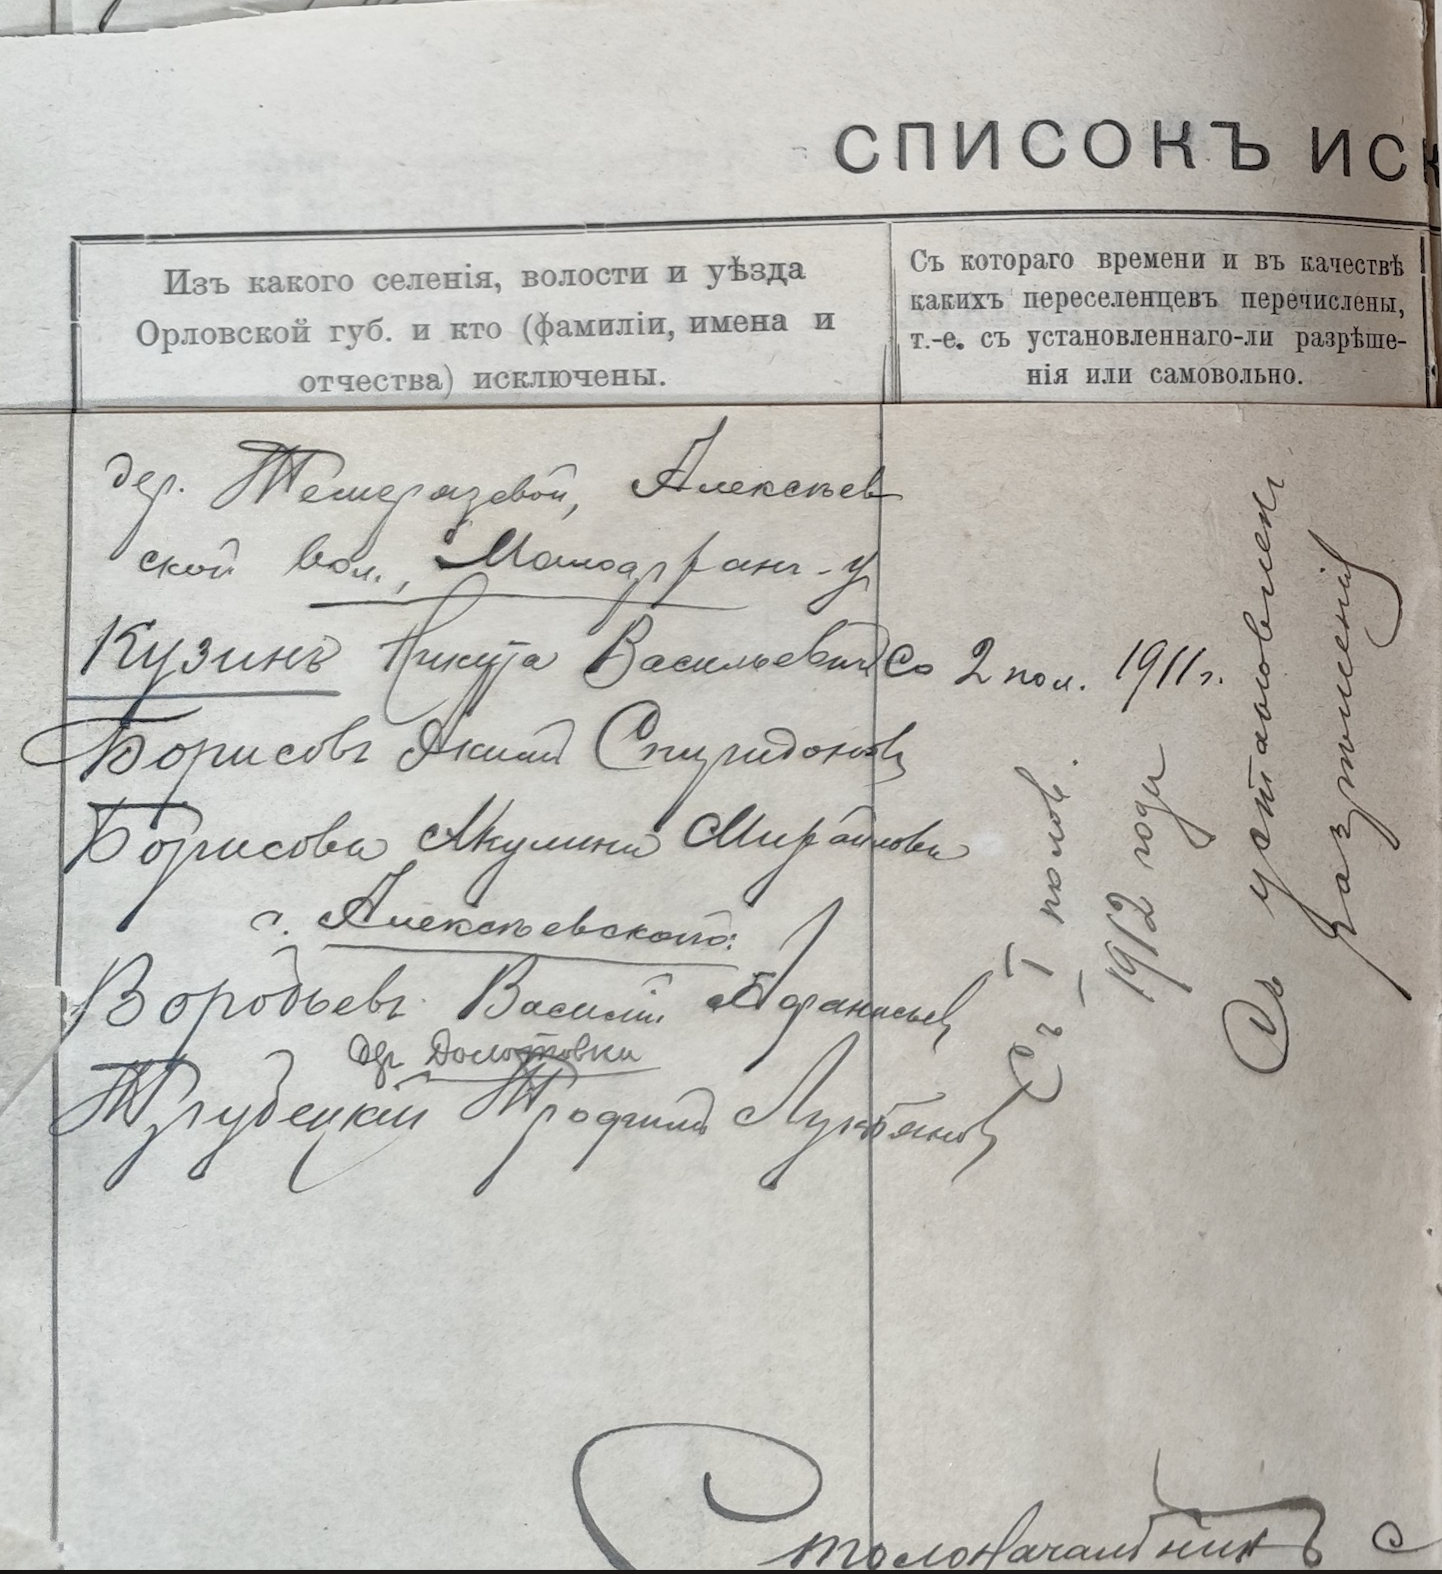 СПИСОКЪ ИСК
Изъ какого селенія, волости и уѣзда
Орловской губ. и кто (фамиліи, имена и
отчества) исключены.
Съ котораго времени и въ качествѣ
какихъ переселенцевъ перечислены,
т.-е. съ установленнаго-ли разрѣше-
нія или самовольно.
дер. Алексѣев
ской вол., Малоарханг. у
Кузинъ Никита Васильевич Со 2 пол. 1911 г.
Борисовъ Аким Спиридонов
Борисова Акулина
с. Алексѣевскаго:
Воробьевъ Василій Афанасьев
дер Долотовки
Трубецкій Трофим Лукьянов
Съ I полов.
1912 года
Съ установлен
разрѣшенія
Столоначальникъ С